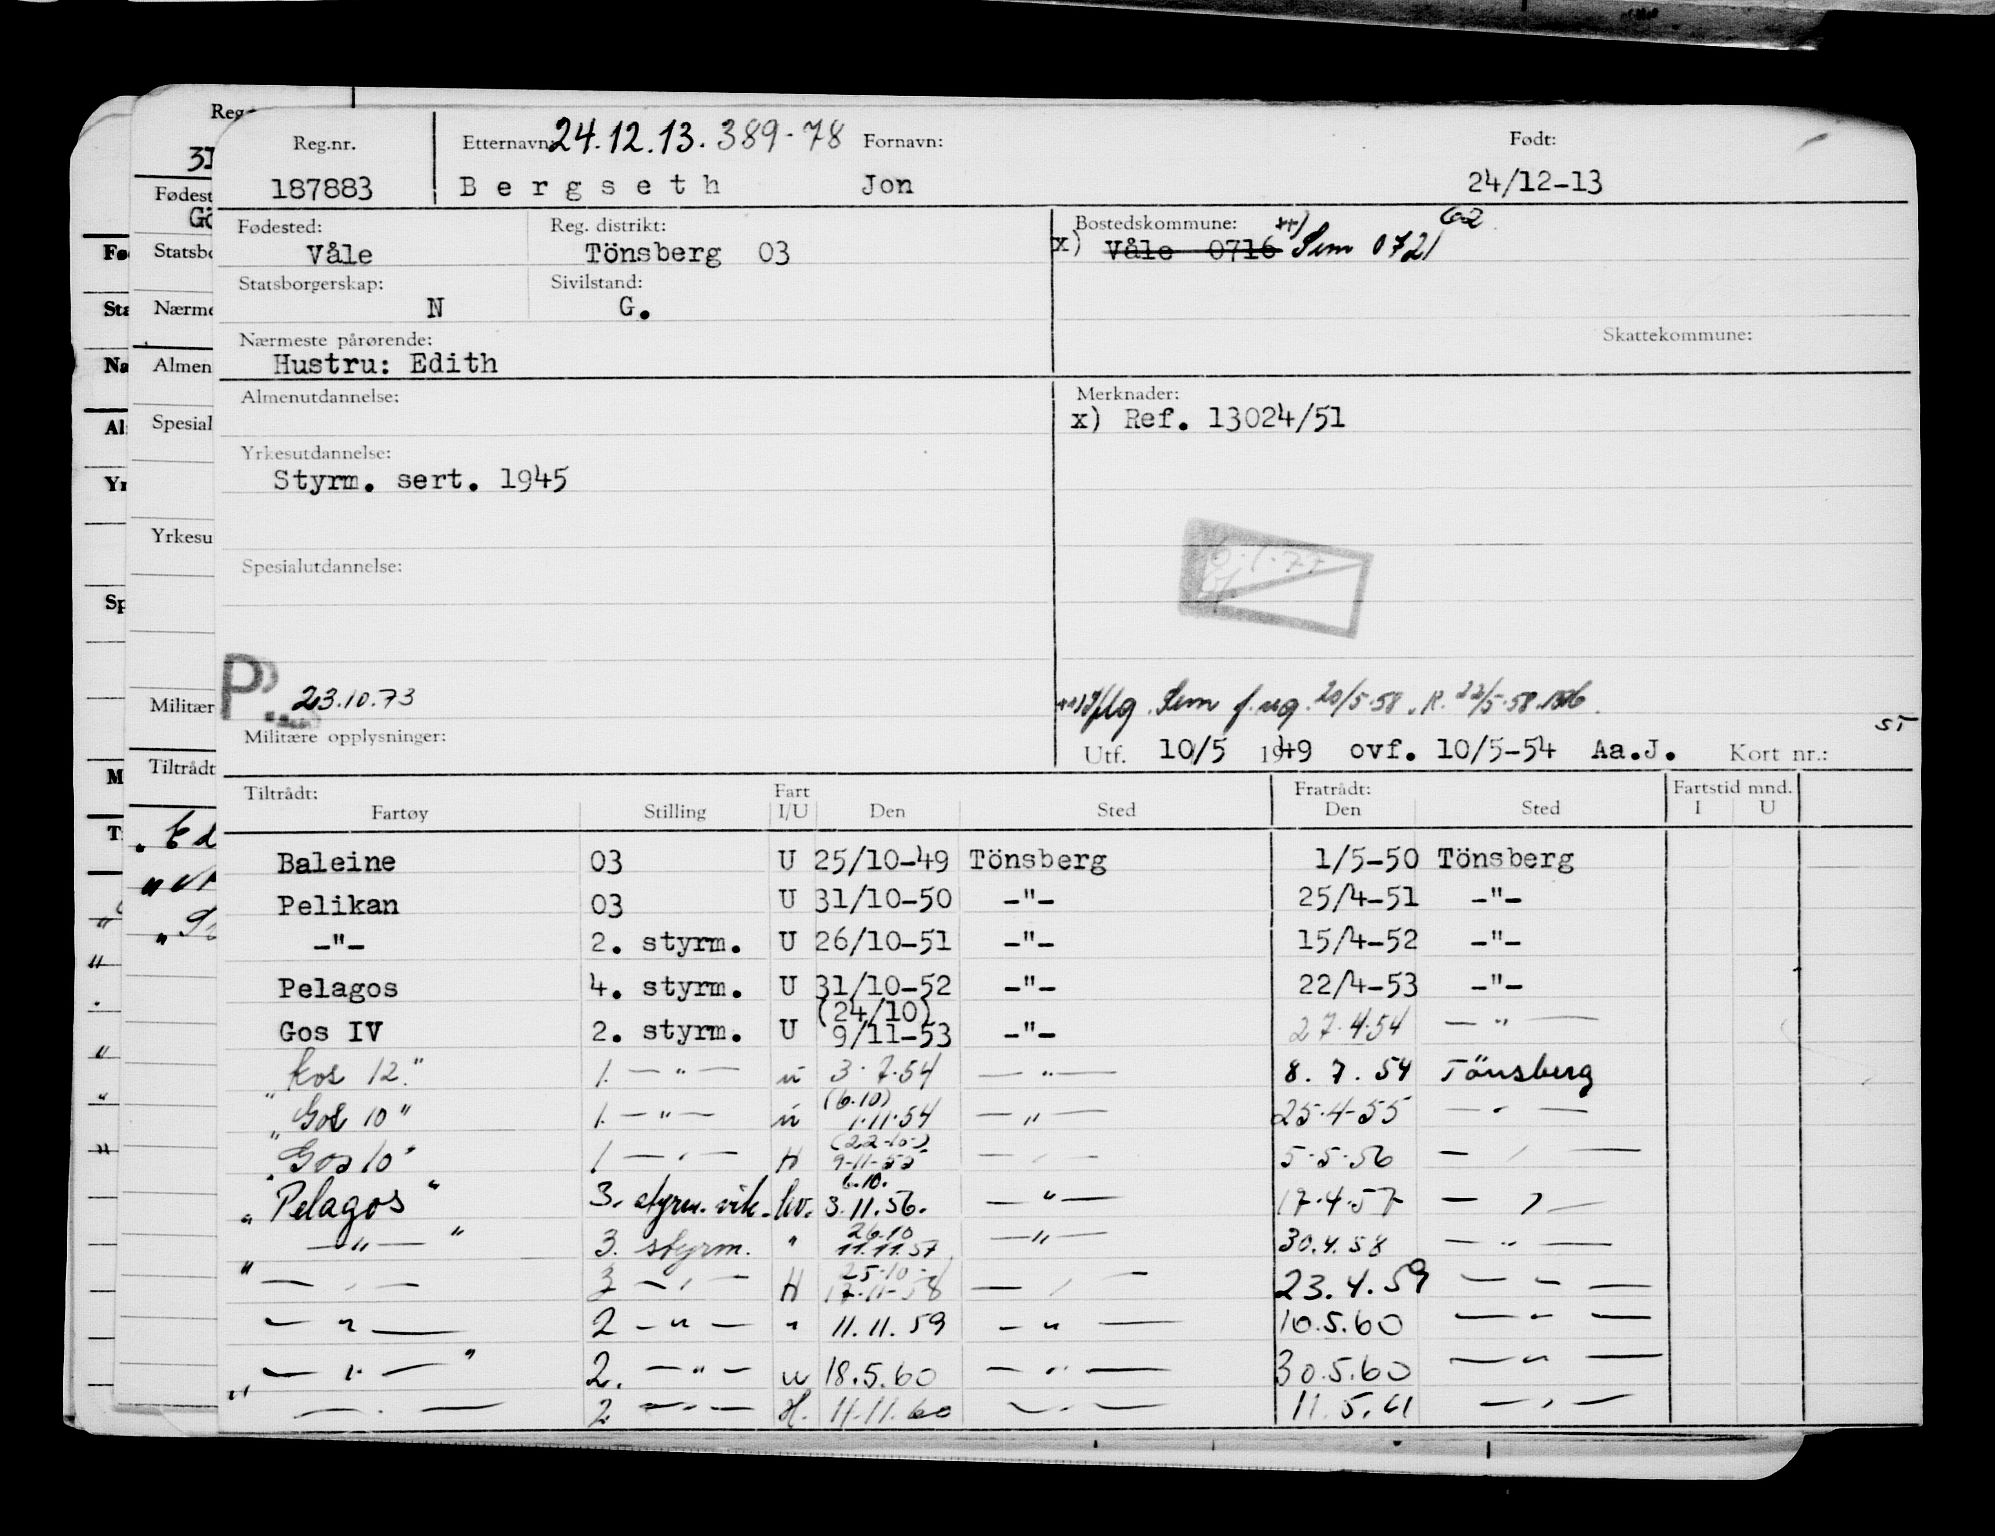 Reg.nr. Etternavn: 24.12.13. 389-78 Fornavn: Født:
187883 Bergseth Jon 24/12-13
Fødested: Reg. distrikt: Bostedskommune: xx) 62
Våle Tönsberg 03 x) Våle 0716 Sem 0721
Statsborgerskap: Sivilstand:
N G.
Nærmeste pårørende: Skattekommune:
Hustru: Edith
Almenutdannelse: Merknader:
x) Ref. 13024/51
Yrkesutdannelse:
Styrm. sert. 1945
Spesialutdannelse:
P. 23.10.73
Sem f. ug. 20/5-58. R. 22/5-58.
Militære opplysninger: ST
Utf. 10/5 1949 ovf. 10/5-54 Aa.J. Kort nr.:
Tiltrådt: Fart Fratrådt: Fartstid mnd.
Fartøy Stilling I/U Den Sted Den Sted I U
Baleine 03 U 25/10-49 Tönsberg 1/5-50 Tönsberg
Pelikan 03 U 31/10-50 -"- 25/4-51 -"-
-"- 2. styrm. U 26/10-51 -"- 15/4-52 -"-
Pelagos 4. styrm. U 31/10-52 -"- 22/4-53 -"-
(24/10)
Gos IV 2. styrm. U 9/11-53 -"- 27.4.54 -"-
"Kos 12." 1. -"- u 3.7.54 -"- 8.7.54 Tönsberg
(6.10)
"Gos 10" 1. -"- u 1.11.54 -"- 25.4-55 -"-
(22-10-)
"Gos 10" 1 -"- H 9-11-55 -"- 5.5.56 -"-
6.10.
"Pelagos" 3. styrm. vik. hv. 3.11.56. -"- 17.4.57 -"-
26.10
-"- " 3. styrm. " 11.11.57 -"- 30.4.58 -"-
25-10-
" -"- 3 -"- H 17-11-58 -"- 23.4.59 -"-
-"- 2 -"- " 11.11.59 -"- 10.5.60 -"-
-"- " 2. -"- u 18.5.60 -"- 30.5.60 -"-
" -"- 2 -"- H. 11.11.60 -"- 11.5.61 -"-